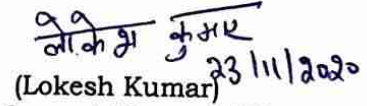 लोकेश कुमार
(Lokesh Kumar) 23/11/2020